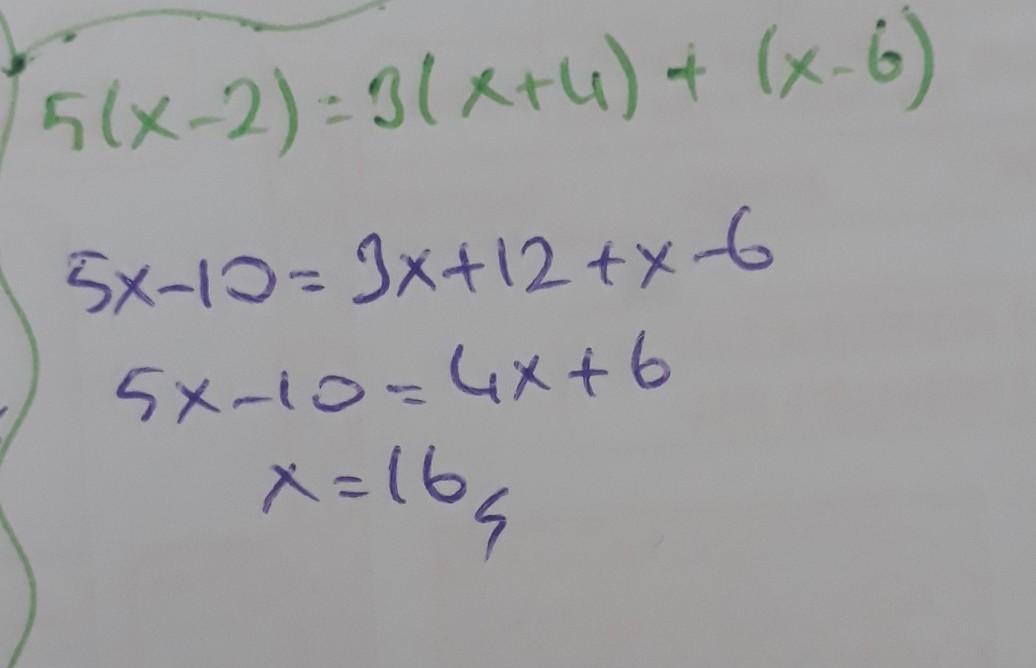 5(x-2)=3(x+4)+(x-6)
5x-10=3x+12+x-6
5x-10=4x+6
x=16